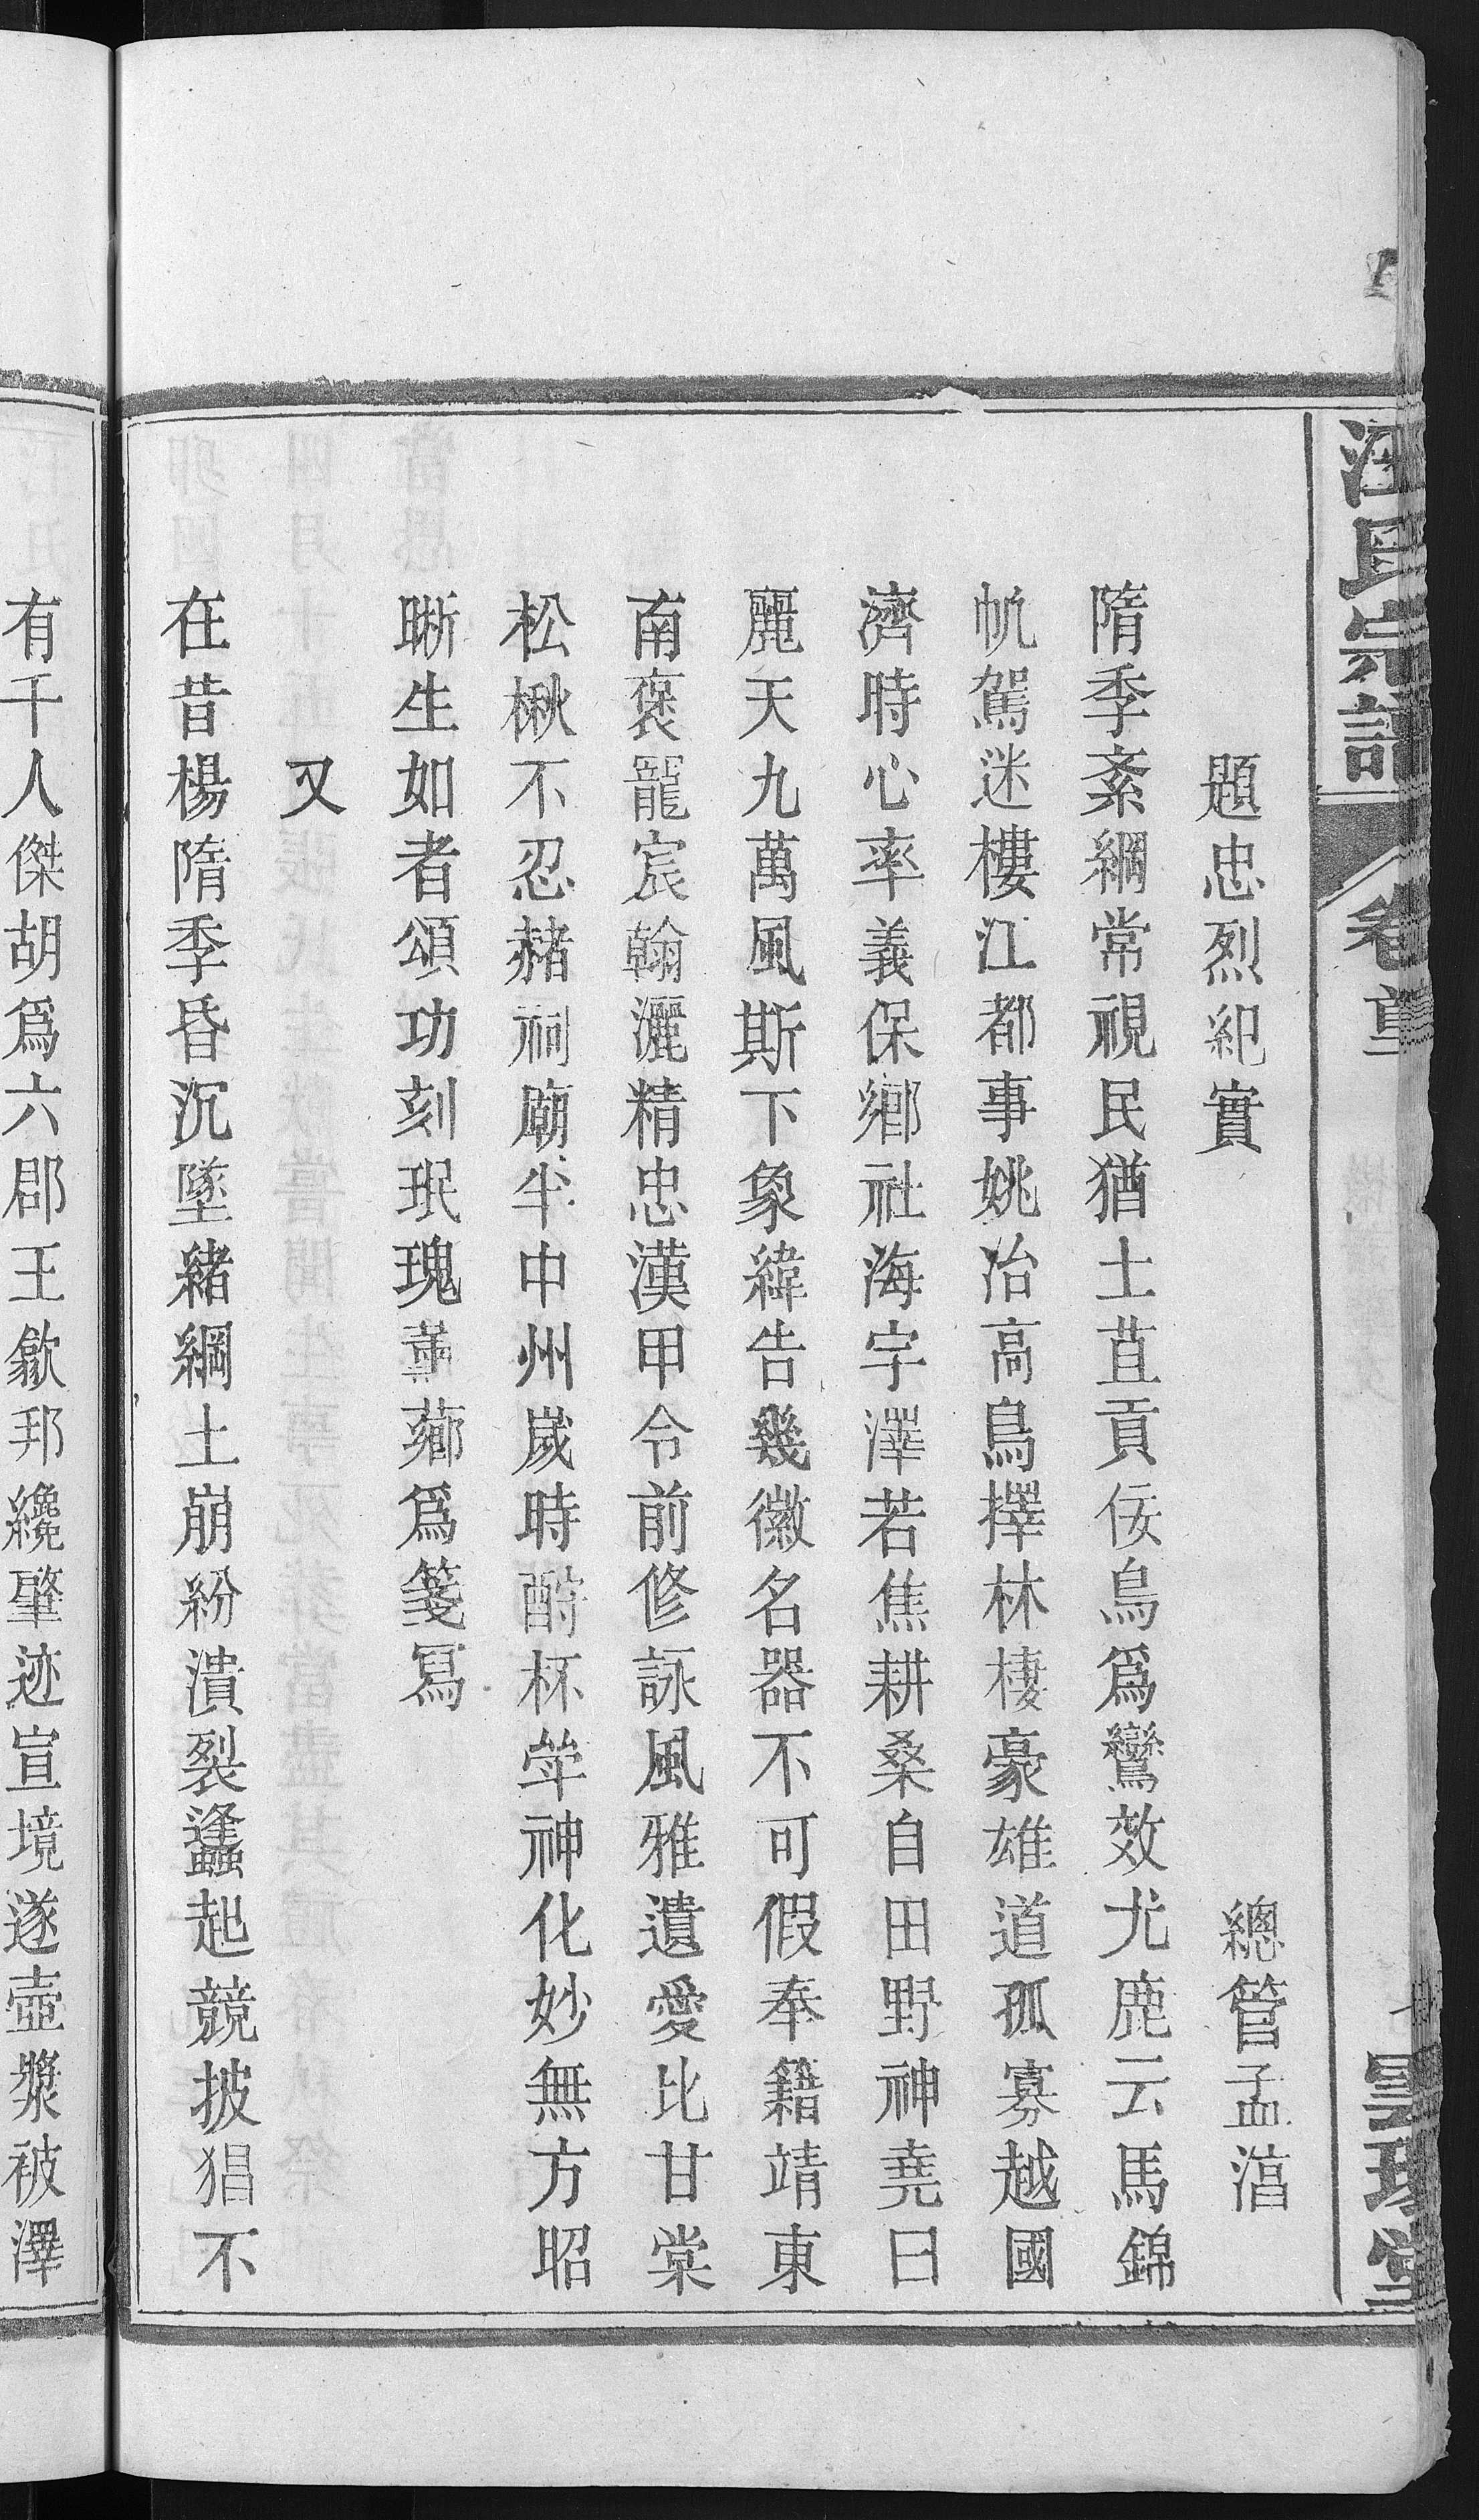 汪氏宗譜
卷首
題忠烈紀實
總管孟湻
隋季紊綱常視民猶土苴貢佞鳥爲鸞效尤鹿云馬錦
帆駕迷樓江都事姚冶高鳥擇林棲豪雄道孤寡越國
濟時心率義保鄉社海宇澤若焦耕桑自田野神堯日
麗天九萬風斯下象緯告幾徽名器不可假奉籍靖東
南褒寵宸翰灑精忠漢甲令前修詠風雅遺愛比甘棠
松楸不忍赭祠廟半中州歲時酹杯斝神化妙無方昭
晰生如者頌功刻珉瑰薌爲箋寫
又
在昔楊隋季昏沉墜緒綱土崩紛潰裂蠭起競披猖不
有千人傑胡爲六郡王歙邦纔肇迹宣境遂壺漿被澤